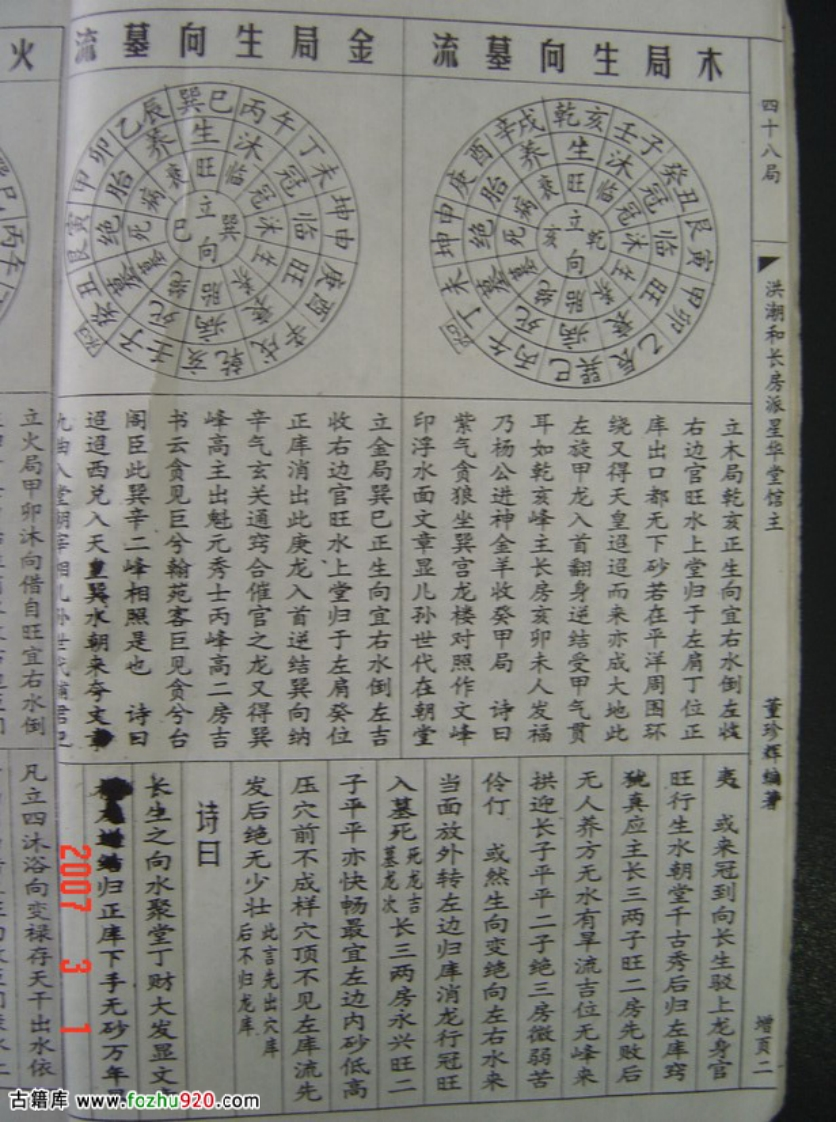 四十八局
洪潮和长房派星华堂馆主
董珍辉编著
增页二
木局生向墓流
乾亥壬子癸丑艮寅甲卯乙辰巽巳丙午丁未坤申庚酉辛戌
生沐冠临旺衰病死墓绝胎养
旺临冠沐生养胎绝墓死病衰
立乾向亥
立木局乾亥正生向宜右水倒左收
右边官旺水上堂归于左肩丁位正
库出口都无下砂若在平洋周围环
绕又得天皇迢迢而来亦成大地此
左旋甲龙入首翻身逆结受甲气贯
耳如乾亥峰主长房亥卯未人发福
乃杨公进神金羊收癸甲局 诗曰
紫气贪狼坐巽宫龙楼对照作文峰
印浮水面文章显儿孙世代在朝堂
金局生向墓流
巽巳丙午丁未坤申庚酉辛戌乾亥壬子癸丑艮寅甲卯乙辰
生沐冠临旺衰病死墓绝胎养
旺临冠沐生养胎绝墓死病衰
立巽向巳
立金局巽巳正生向宜右水倒左吉
收右边官旺水上堂归于左肩癸位
正库消出此庚龙入首逆结巽向纳
辛气玄关通窍合催官之龙又得巽
峰高主出魁元秀士丙峰高二房吉
书云贪见巨兮翰苑客巨见贪兮台
阁臣此巽辛二峰相照是也 诗曰
迢迢西兑入天皇巽水朝来夸文章
火
立火局甲卯沐向借自旺宜右水倒
夷 或来冠到向长生驳上龙身官
旺行生水朝堂千古秀后归左库窍
犹真应主长三两子旺二房先败后
无人养方无水有旱流吉位无峰来
拱迎长子平平二子绝三房微弱苦
伶仃 或然生向变绝向左右水来
当面放外转左边归库消龙行冠旺
入墓死死龙吉墓龙次长三两房永兴旺二
子平平亦快畅最宜左边内砂低高
压穴前不成样穴顶不见左库流先
发后绝无少壮此言先出穴库后不归龙库
诗曰
长生之向水聚堂丁财大发显文
归正库下手无砂万年
凡立四沐浴向变禄存天干出水依
2007 3 1
古籍库 www.fozhu920.com